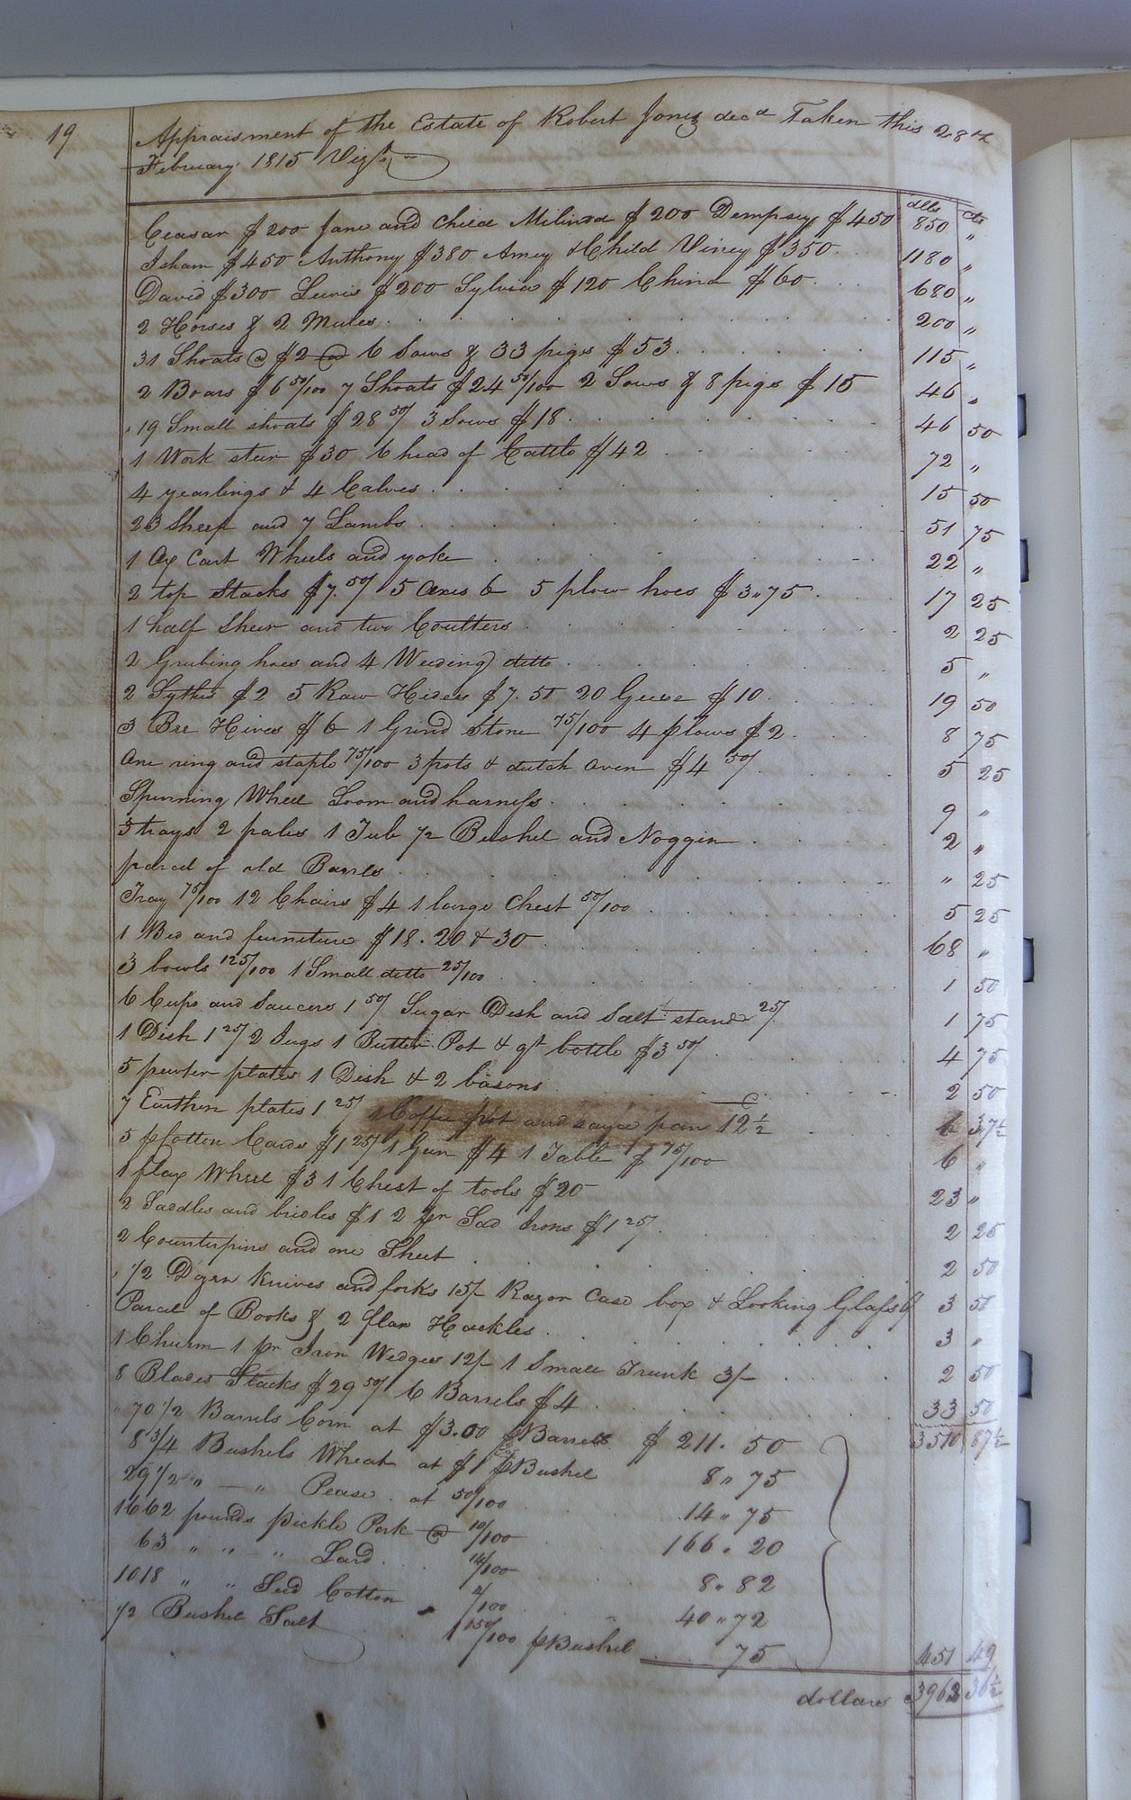 19
Appraisment of the Estate of Robert Jones decd Taken this 28th
February 1815 Vizt
dolls cts
Ceasar $200 Jane and Child Milinda $200 Dempsey $450 850 "
Isham $450 Anthony $380 Amey & Child Viney $350 1180 "
David $300 Lewis $200 Sylvia $120 China $60 680 "
2 Horses & 2 Mules 200 "
31 Shoats @ $2 6 Sows & 33 pigs $53 115 "
2 Boars $6 50/100 7 Shoats $24 50/100 2 Sows & 8 pigs $15 46 "
19 Small shoats $28 50/ 3 Sows $18 46 50
1 Work steer $30 6 head of Cattle $42 72 "
4 yearlings & 4 Calves 15 50
23 Sheep and 7 Lambs 51 75
1 Ox Cart Wheels and yoke 22 "
2 top Stacks $7.50/ 5 axes 6 5 plow hoes $3"75 17 25
1 half Sheer and two Coulters 2 25
2 Grubing hoes and 4 Weeding ditto 5 "
2 Sythes $2 5 Raw Hides $7.50 20 Geese $10 19 50
3 Bee Hives $6 1 Grind Stone 75/100 4 plows $2 8 75
One ring and staple 75/100 3 pots & dutch oven $4 50/ 5 25
Spinning Wheel Loom and harness 9 "
3 trays 2 pales 1 Tub 1/2 Bushel and Noggin 2 "
parcel of old Barrels " 25
Tray 75/100 12 Chairs $4 1 large Chest 50/100 5 25
1 Bed and furniture $18. 20 & 30 68 "
3 bowls 125/100 1 Small ditto 25/100 1 50
6 Cups and Saucers 1 50/ Sugar Dish and Salt stand 25/ 1 75
1 Dish 1 25/ 2 Jugs 1 Butter Pot & qt bottle $3 50/ 4 75
5 pewter plates 1 Dish & 2 basons 2 50
7 Earthen plates 1 25/ 1 Coffee pot and sauce pan 12 1/2 6 37 1/2
5 p Cotton Cards $1 25/ 1 Gun $4 1 Table $ 75/100 6 "
1 flax Wheel $3 1 Chest of tools $20 23 "
2 Saddles and bridles $1 2 pr Sad Irons $1 25/ 2 25
2 Counterpins and one Sheet 2 50
1/2 Dozn Knives and forks 15/- Razor Case box & Looking Glass 6/ 3 50
Parcel of Books & 2 flax Hackles 3 "
1 Churm 1 pr Iron Wedges 12/- 1 Small Trunk 3/- 2 50
8 Blades Stacks $29 50/ 6 Barrels $4 33 50
3510 87 1/2
70 1/2 Barrels Corn at $3.00 p Barrels $211.50
8 3/4 Bushels Wheat at $1 p Bushel 8"75
29 1/2 " — " Pease at 50/100 14"75
1662 pounds pickle Pork @ 10/100 166.20
63 " " " Lard 14/100 8"82
1018 " " Seed Cotton 4/100 40"72
1/2 Bushel Salt 150/100 p Bushel 75 451 49
dollars 3962 36 1/2